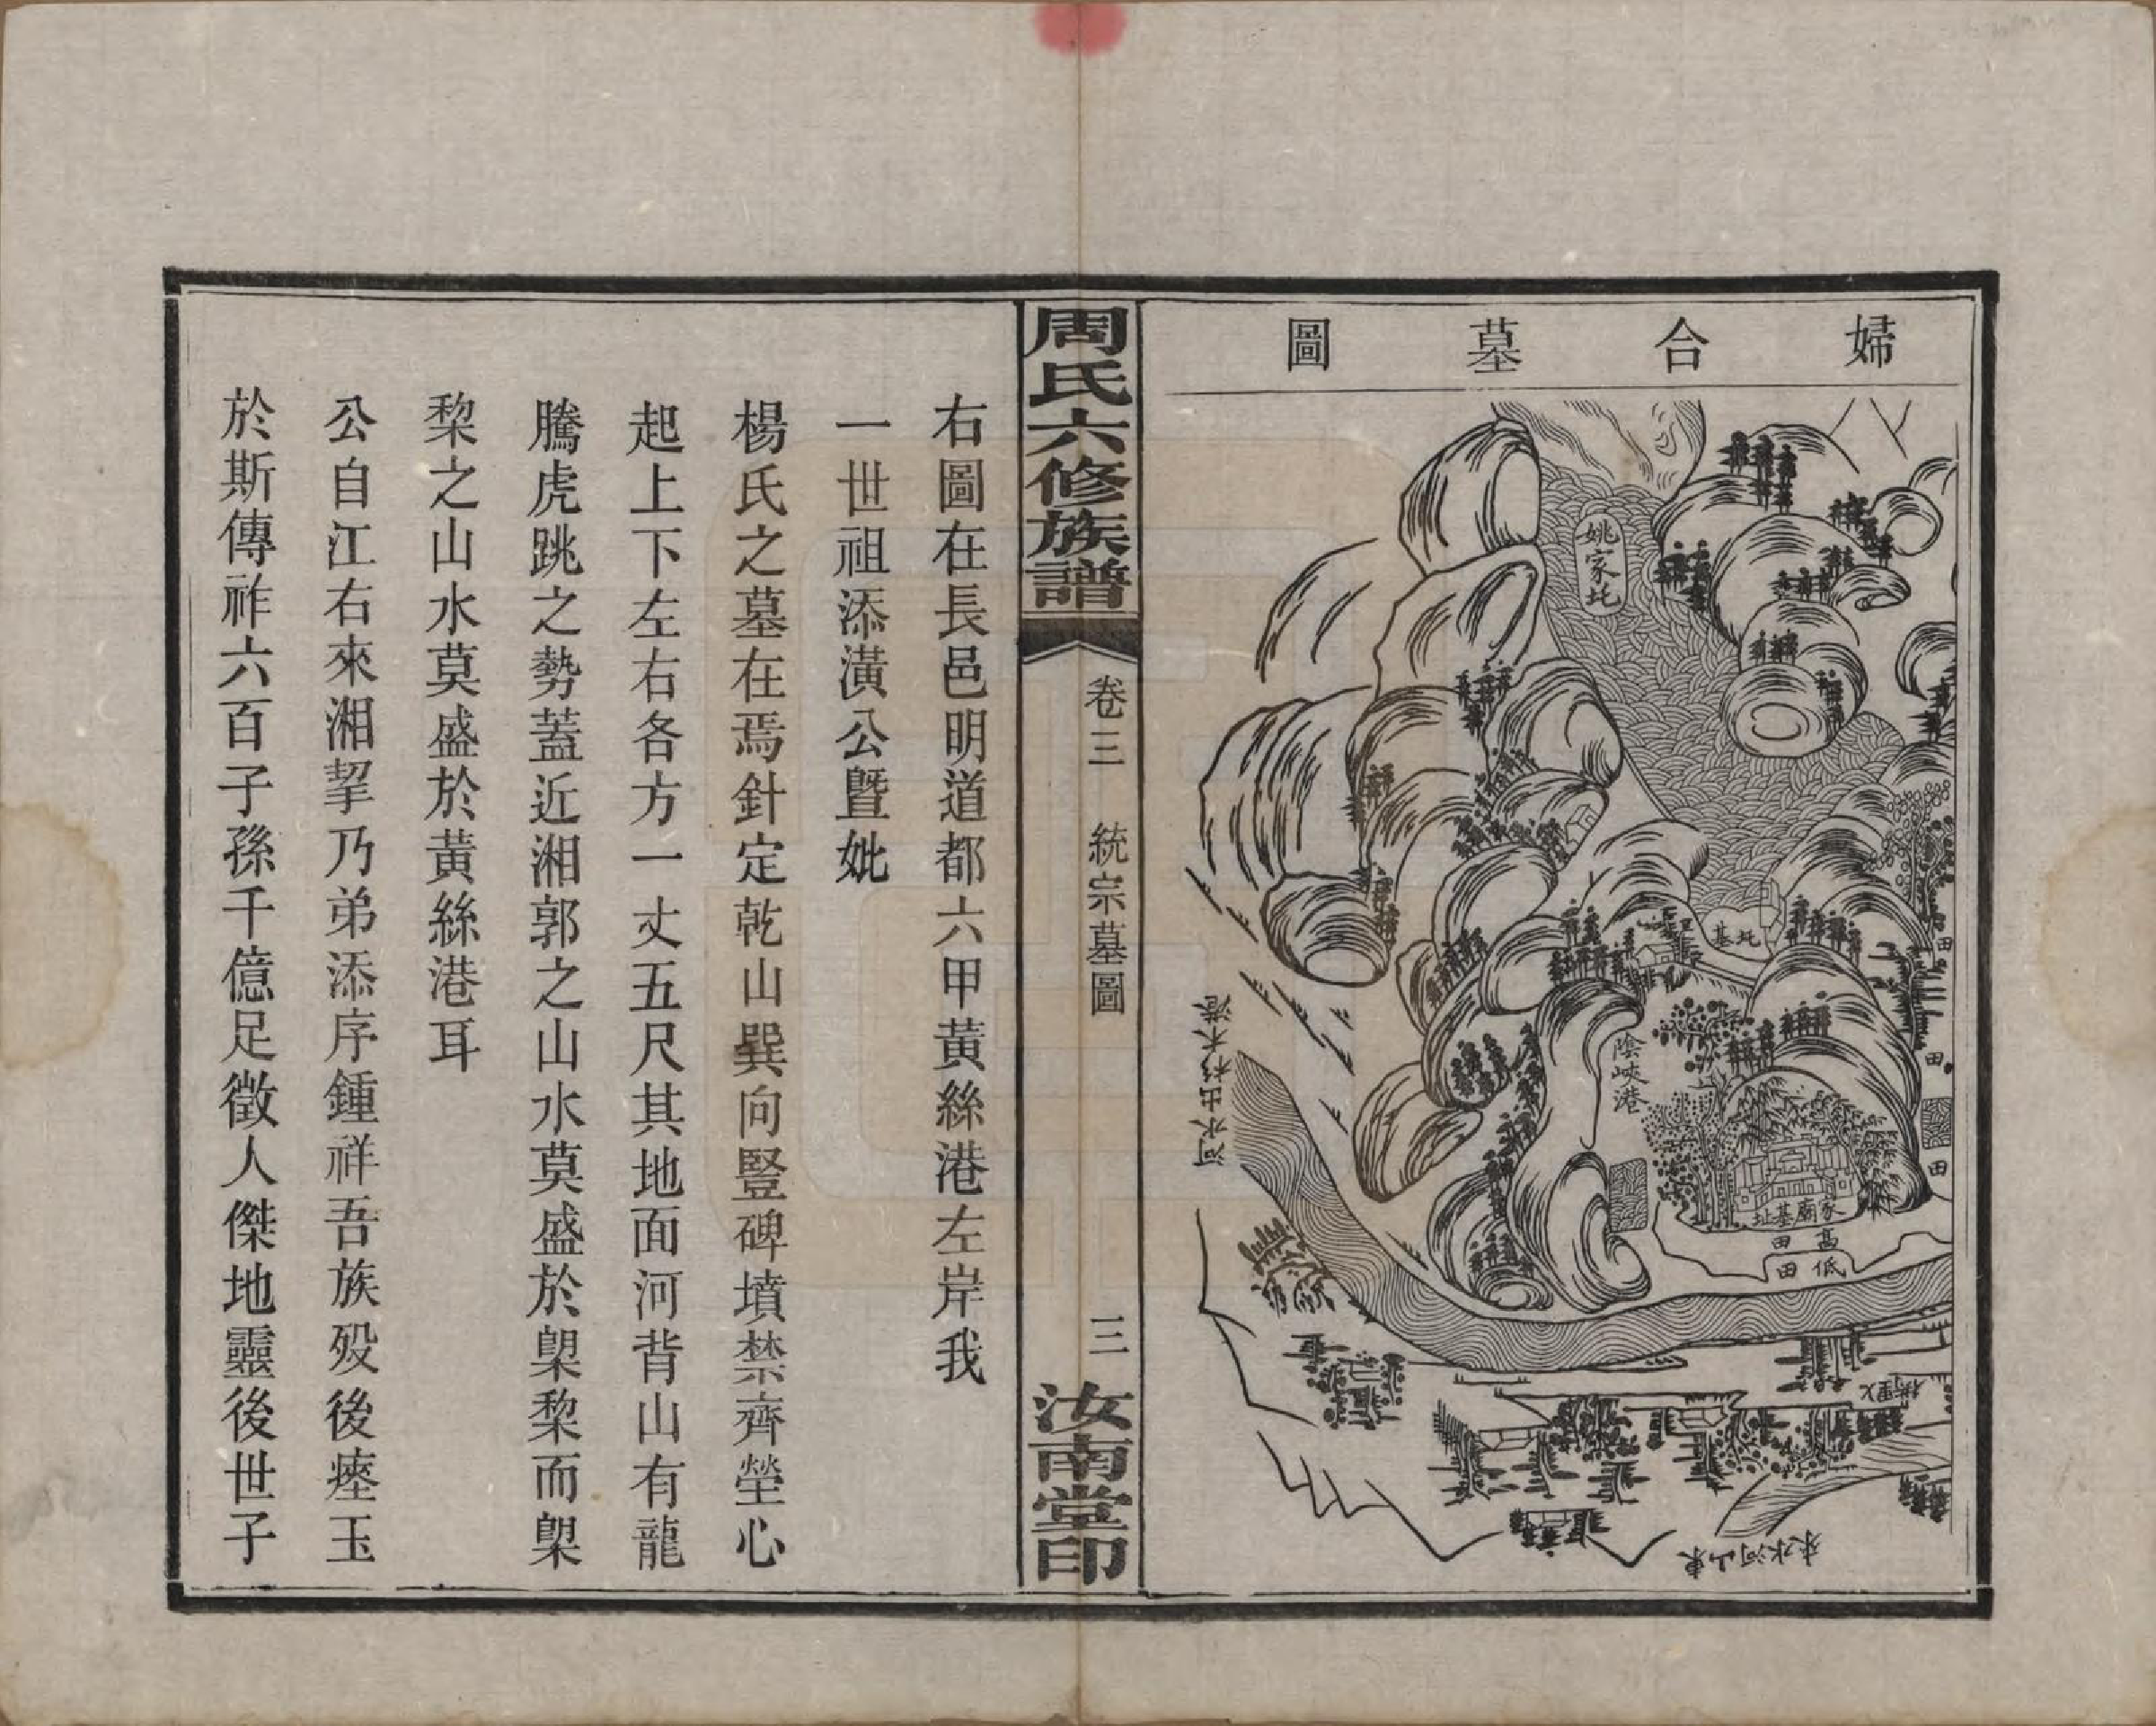 婦合墓圖
姚家圫
圫基
陰峽港
家廟基址
高田
低田
田
田
田
河水出杉木港
東山河水來
周氏六修族譜
卷三 統宗墓圖 三
汝南堂印
右圖在長邑明道都六甲黃絲港左岸我
一世祖添潢公暨妣
楊氏之墓在焉針定乾山巽向豎碑墳禁齊塋心
起上下左右各方一丈五尺其地面河背山有龍
騰虎跳之勢蓋近湘郭之山水莫盛於㮚棃而㮚
棃之山水莫盛於黃絲港耳
公自江右來湘挈乃弟添序鍾祥吾族歿後瘞玉
於斯傳祚六百子孫千億足徵人傑地靈後世子